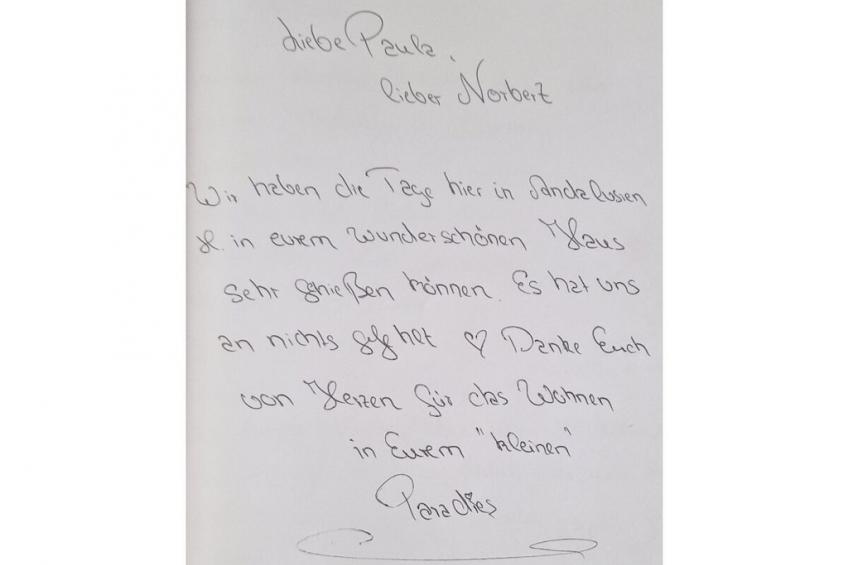 Liebe Paula,
lieber Norbert
Wir haben die Tage hier in Andalusien
& in eurem wunderschönen Haus
sehr genießen können. Es hat uns
an nichts gefehlt ♡ Danke Euch
von Herzen für das Wohnen
in Eurem "kleinen"
Paradies